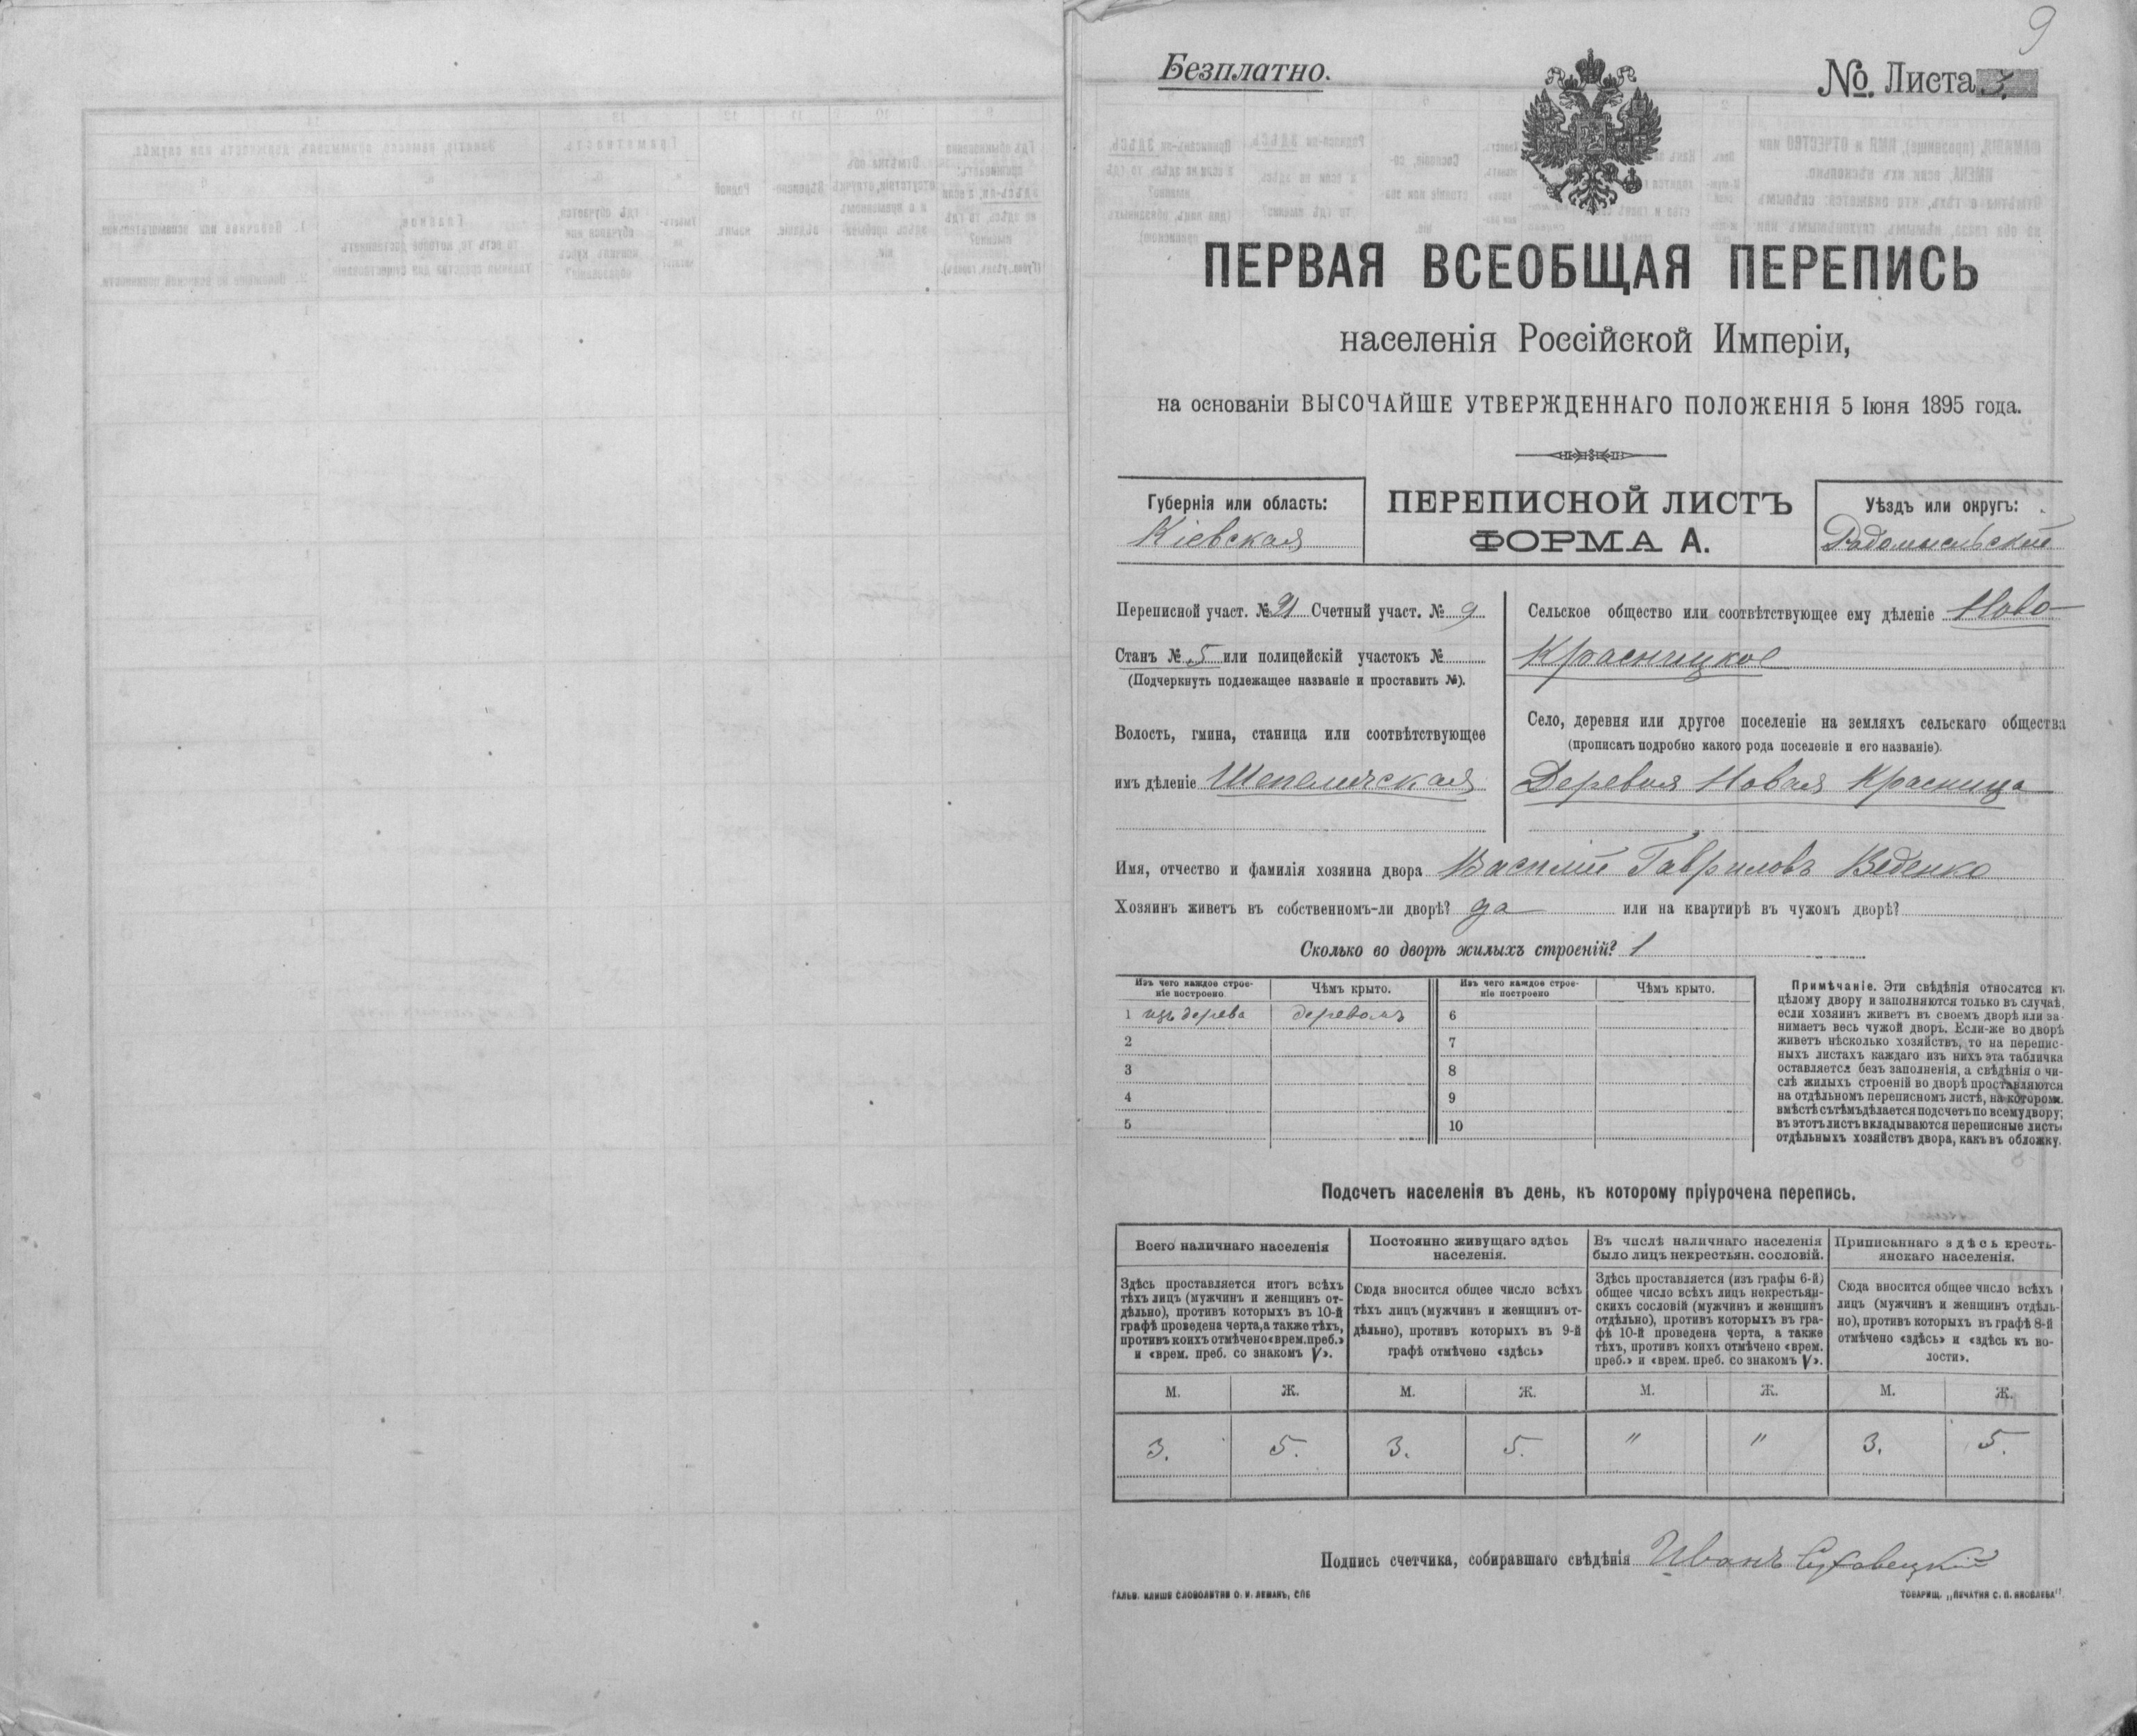 9
Безплатно.
№. Листа 3.
ПЕРВАЯ ВСЕОБЩАЯ ПЕРЕПИСЬ
населенія Россійской Имперіи,
на основаніи ВЫСОЧАЙШЕ УТВЕРЖДЕННАГО ПОЛОЖЕНІЯ 5 Іюня 1895 года.
Губернія или область:
Кіевская
ПЕРЕПИСНОЙ ЛИСТЪ
ФОРМА А.
Уѣздъ или округъ:
Радомысльскій
Переписной участ. № 21 Счетный участ. № 9
Станъ № 5 или полицейскій участокъ №
(Подчеркнуть подлежащее названіе и проставить №).
Волость, гмина, станица или соотвѣтствующее
имъ дѣленіе Шепеличская
Сельское общество или соотвѣтствующее ему дѣленіе Ново-
Красницкое
Село, деревня или другое поселеніе на земляхъ сельскаго общества
(прописать подробно какого рода поселеніе и его названіе).
Деревня Новая Красница
Имя, отчество и фамилія хозяина двора Василій Гавриловъ Веденко
Хозяинъ живетъ въ собственномъ-ли дворѣ? да или на квартирѣ въ чужомъ дворѣ?
Сколько во дворѣ жилыхъ строеній? 1
Изъ чего каждое строе-
ніе построено.
Чѣмъ крыто.
Изъ чего каждое строе-
ніе построено
Чѣмъ крыто.
1 изъ дерева деревомъ 6
2 7
3 8
4 9
5 10
Примѣчаніе. Эти свѣдѣнія относятся къ
цѣлому двору и заполняются только въ случаѣ,
если хозяинъ живетъ въ своемъ дворѣ или за-
нимаетъ весь чужой дворъ. Если-же во дворѣ
живетъ нѣсколько хозяйствъ, то на перепис-
ныхъ листахъ каждаго изъ нихъ эта табличка
оставляется безъ заполненія, а свѣдѣнія о чи-
слѣ жилыхъ строеній во дворѣ проставляются
на отдѣльномъ переписномъ листѣ, на которомъ
вмѣстѣ съ тѣмъ дѣлается подсчетъ по всему двору;
въ этотъ листъ вкладываются переписные листы
отдѣльныхъ хозяйствъ двора, какъ въ обложку.
Подсчетъ населенія въ день, къ которому пріурочена перепись.
Всего наличнаго населенія
Здѣсь проставляется итогъ всѣхъ
тѣхъ лицъ (мужчинъ и женщинъ от-
дѣльно), противъ которыхъ въ 10-й
графѣ проведена черта, а также тѣхъ,
противъ коихъ отмѣчено «врем. преб.»
и «врем. преб. со знакомъ V».
Постоянно живущаго здѣсь
населенія.
Сюда вносится общее число всѣхъ
тѣхъ лицъ (мужчинъ и женщинъ от-
дѣльно), противъ которыхъ въ 9-й
графѣ отмѣчено «здѣсь»
Въ числѣ наличнаго населенія
было лицъ некрестьян. сословій.
Здѣсь проставляется (изъ графы 6-й)
общее число всѣхъ лицъ некрестьян-
скихъ сословій (мужчинъ и женщинъ
отдѣльно), противъ которыхъ въ гра-
фѣ 10-й проведена черта, а также
тѣхъ, противъ коихъ отмѣчено «врем.
преб.» и «врем. преб. со знакомъ V».
Приписаннаго здѣсь кресть-
янскаго населенія.
Сюда вносится общее число всѣхъ
лицъ (мужчинъ и женщинъ отдѣль-
но), противъ которыхъ въ графѣ 8-й
отмѣчено «здѣсь» и «здѣсь къ во-
лости».
М. Ж. М. Ж. М. Ж. М. Ж.
3. 5. 3. 5. " " 3. 5.
Подпись счетчика, собиравшаго свѣдѣнія Иванъ
ГАЛЬВ. КЛИШЕ СЛОВОЛИТНИ О. И. ЛЕМАНЪ, СПБ
ТОВАРИЩ. „ПЕЧАТНЯ С. П. ЯКОВЛЕВА"